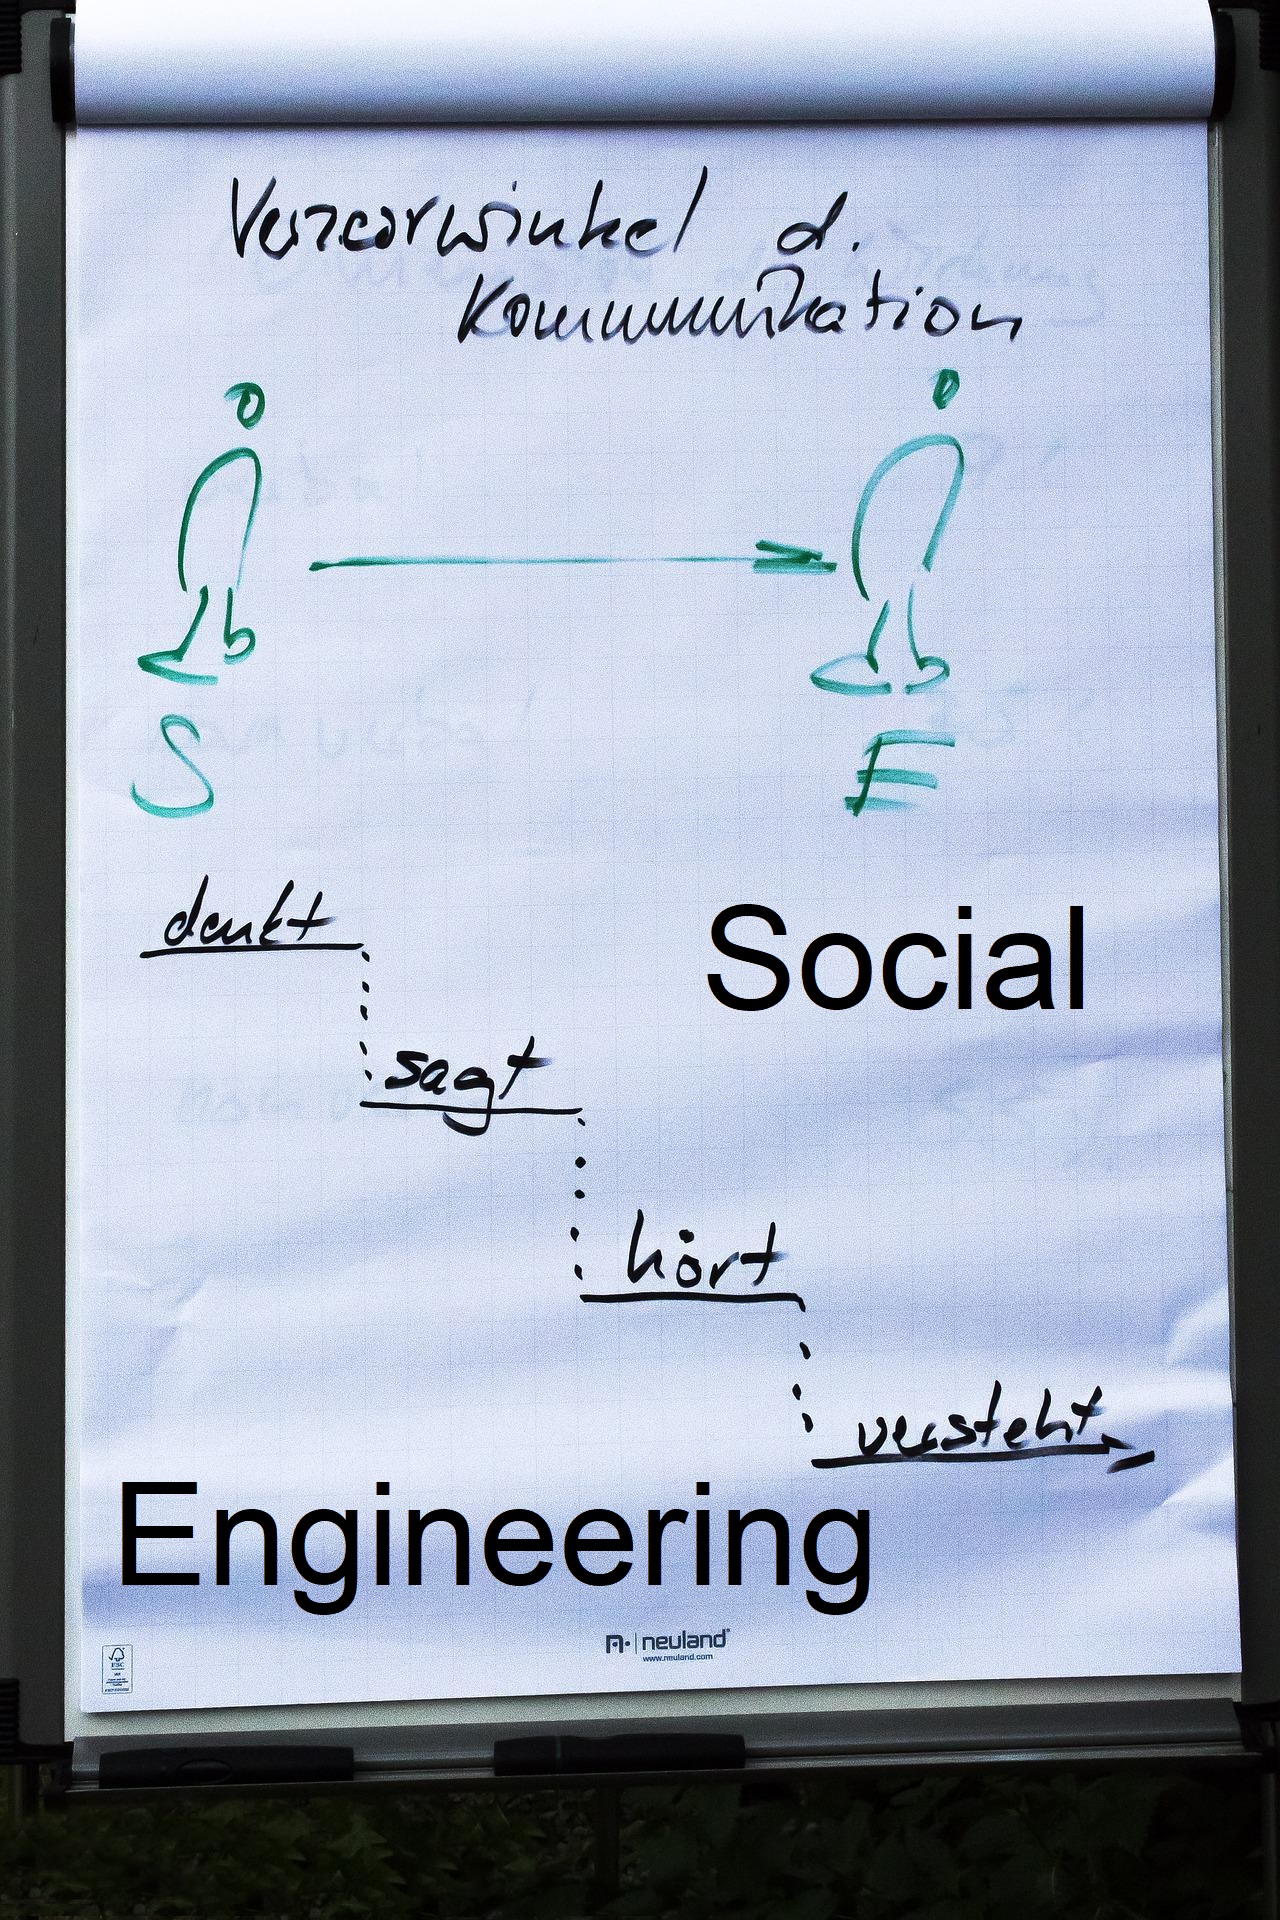 Verzerrwinkel d.
Kommunikation
S
E
denkt
Social
sagt
hört
versteht
Engineering
neuland
www.neuland.com
FSC